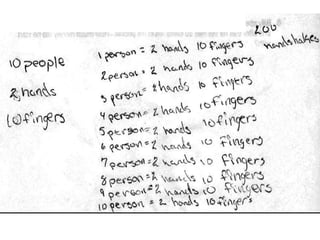 200
handshakes
10 people
2 hands
10 fingers
1 person = 2 hands 10 fingers
2 person = 2 hands 10 fingers
3 person = 2 hands 10 fingers
4 person = 2 hands 10 fingers
5 person = 2 hands 10 fingers
6 person = 2 hands 10 fingers
7 person = 2 hands 10 fingers
8 person = 2 hands 10 fingers
9 person = 2 hands 10 fingers
10 person = 2 hands 10 fingers